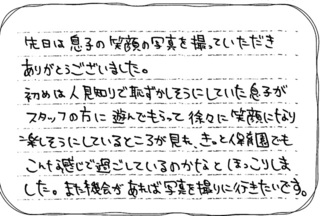 先日は息子の笑顔の写真を撮っていただき
ありがとうございました。
初めは人見知りで恥ずかしそうにしていた息子が
スタッフの方に遊んでもらって徐々に笑顔になり
楽しそうにしているところが見れ、きっと保育園でも
こんな感じで過ごしているのかなとほっこりしま
した。また機会があれば写真を撮りに行きたいです。